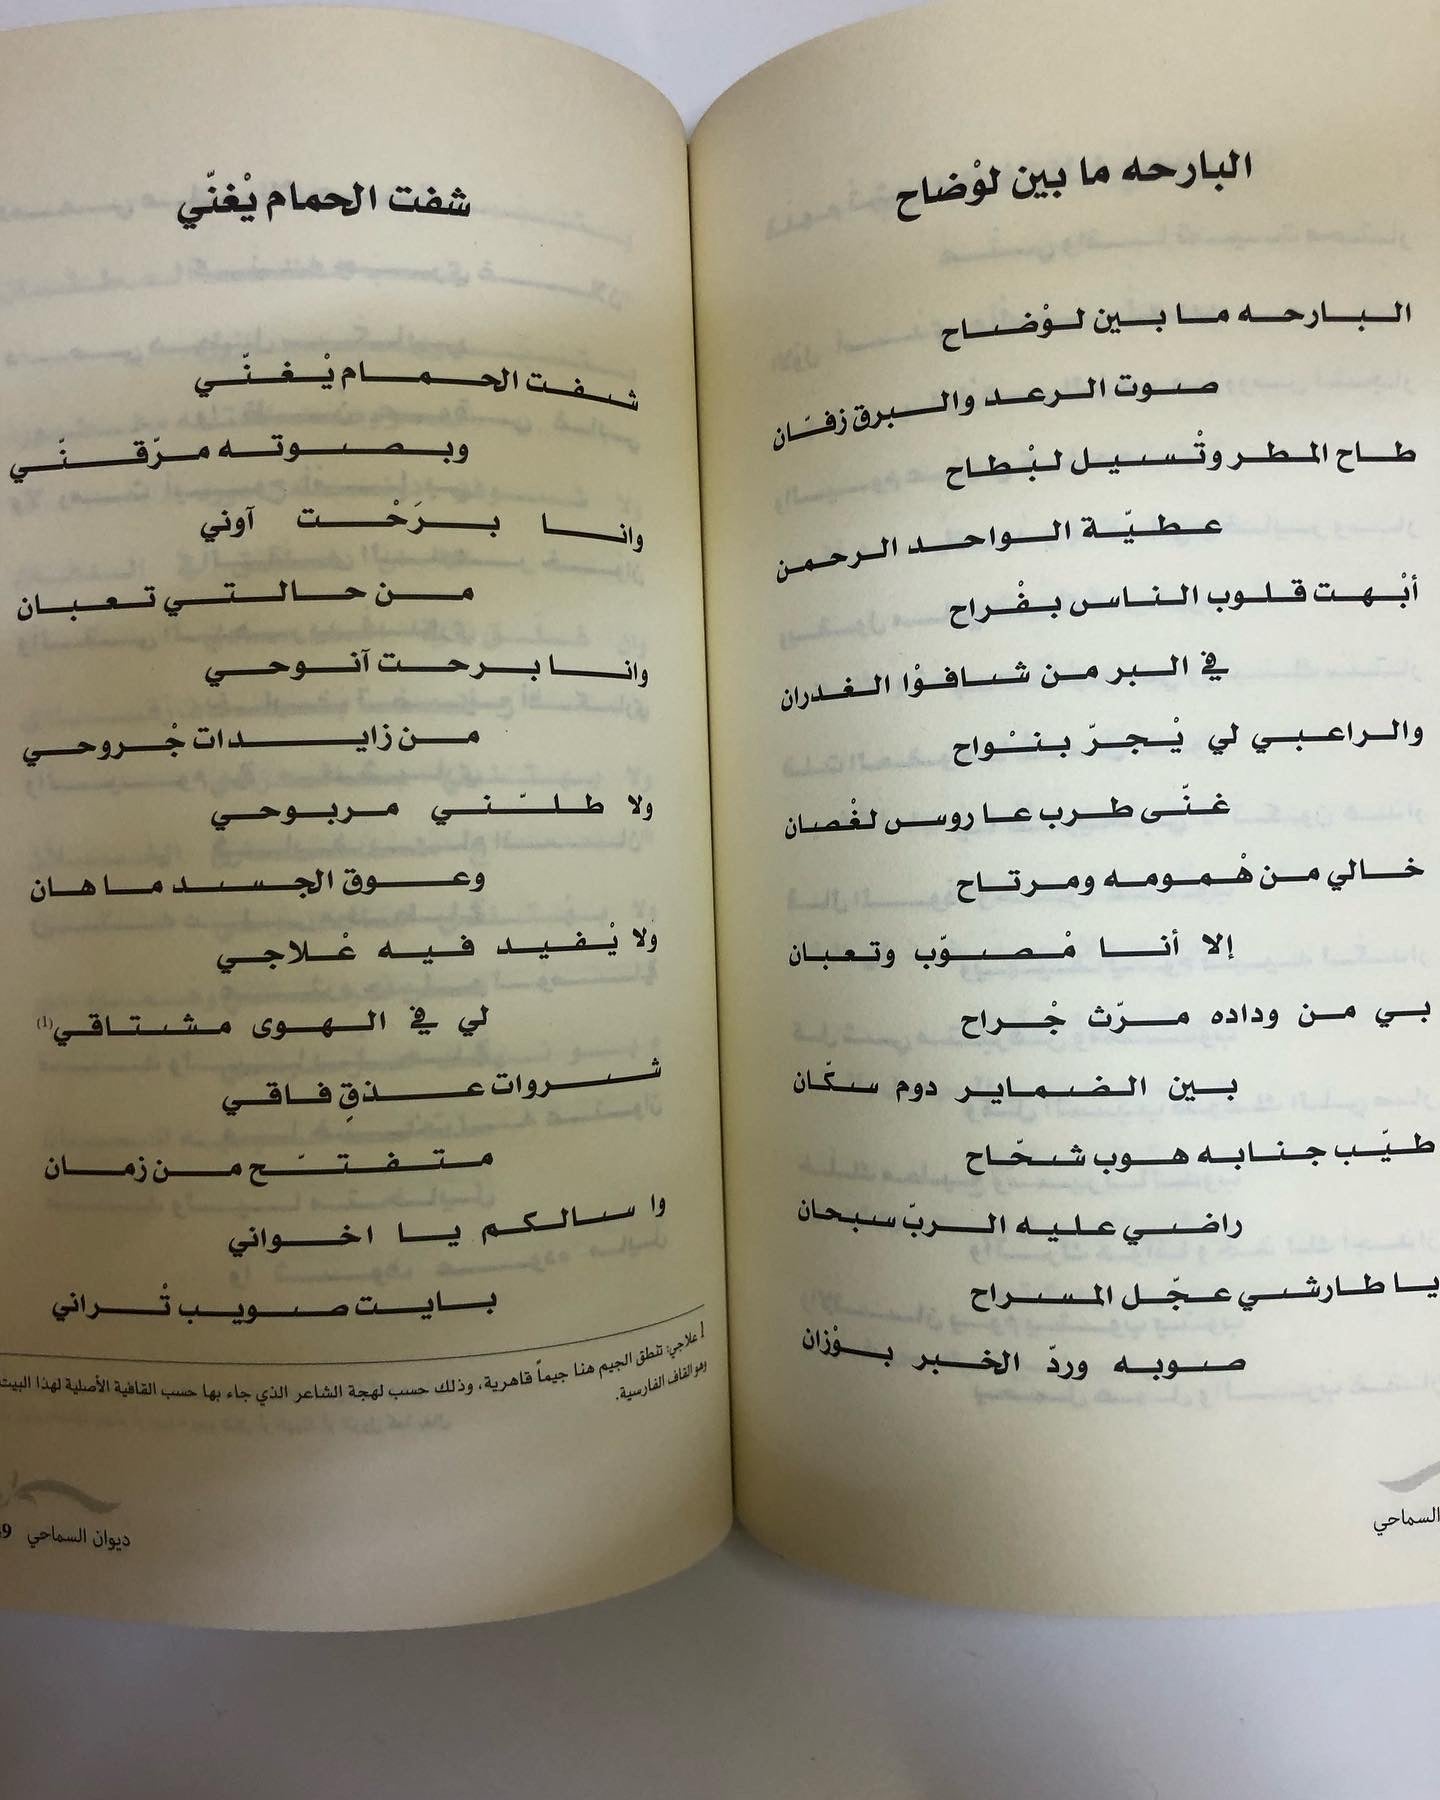 البارحه ما بين لوْضاح
البارحه ما بين لوْضاح
صوت الرعد والبرق زفّان
طاح المطر وتْسيل لبْطاح
عطيّة الواحد الرحمن
أبْهت قلوب الناس بفْراح
في البر من شافوْا الغدران
والراعبي لي يْجرّ بنْواح
غنّى طرب عا روس لغْصان
خالي من هْمومه ومرتاح
إلا أنا مْصوّب وتعبان
بي من وداده مرّث جْراح
بين الضماير دوم سكّان
طيّب جنابه هوب شحّاح
راضي عليه الربّ سبحان
يا طارشي عجّل المسراح
صوبه وردّ الخبر بوْزان
السماحي
شفت الحمام يْغنّي
شفت الحمام يْغنّي
وبصوته مرّقنّي
وانا برَحْت آوني
من حالتي تعبان
وانا برحت آنوحي
من زايدات جْروحي
ولا طلّني مربوحي
وعوق الجسد ما هان
ولا يْفيد فيه عْلاجي
لي في الهوى مشتاقي(1)
شروات عذقِ فاقي
متفتّح من زمان
وا سالكم يا اخواني
بايت صويب تْراني
1 علاجي: تنطق الجيم هنا جيماً قاهرية، وذلك حسب لهجة الشاعر الذي جاء بها حسب القافية الأصلية لهذا البيت
وهو القاف الفارسية.
ديوان السماحي